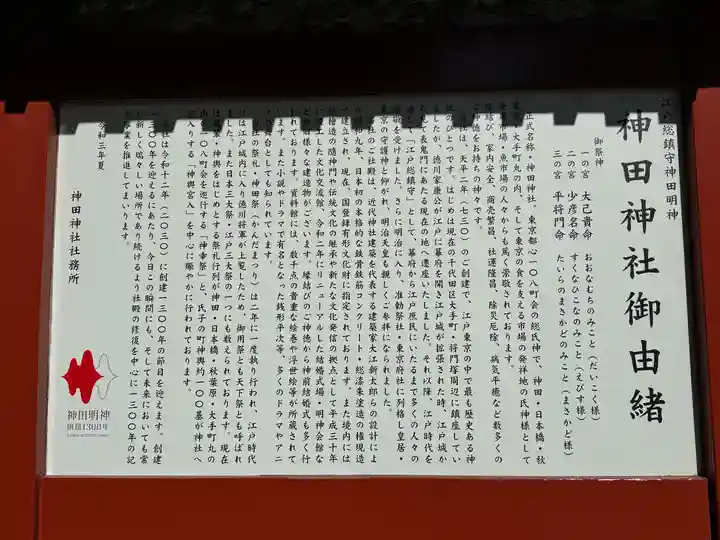 江戸総鎮守神田明神
神田神社御由緒
御祭神
一の宮 大己貴命 おおなむちのみこと（だいこく様）
二の宮 少彦名命 すくなひこなのみこと（えびす様）
三の宮 平将門命 たいらのまさかどのみこと（まさかど様）
正式名称・神田神社。東京都心一〇八町会の総氏神で、神田・日本橋・秋
大手町・丸の内、そして東京の食を支える市場の発祥の地の氏神様として
市場・魚市場の人々からも篤く崇敬されております。
縁結び、家内安全、商売繁昌、社運隆昌、除災厄除、病気平癒など数多くの
ご神徳をお持ちの神々です。
当社は、天平二年（七三〇）のご創建で、江戸東京の中で最も歴史ある神
社のひとつです。はじめは現在の千代田区大手町・将門塚周辺に鎮座してい
ましたが、徳川家康公が江戸に幕府を開き江戸城が拡張された時、江戸城か
ら見て表鬼門にあたる現在の地へ遷座いたしました。それ以降、江戸時代を
通して「江戸総鎮守」として、幕府から江戸庶民にいたるまで多くの人々の
崇敬を受けました。さらに明治に入り、准勅祭社・東京府社に列格し皇居・
東京の守護神と仰がれ、明治天皇も親しくご参拝になられました。
社のご社殿は、近代神社建築を代表する建築家大江新太郎らの設計によ
昭和九年、日本初の本格的な鉄骨鉄筋コンクリート・総漆朱塗造の権現造
建立され、現在、国登録有形文化財に指定されております。また境内には
総檜造の随神門や伝統文化の継承や新たな文化発信の拠点として平成三十年
に竣工した文化交流館、令和二年にリニューアルした結婚式場・明神会館な
ど様々な建造物がございます。縁結びのご神徳から神前結婚式も多く行
われております。資料館には、数千点の貴重な絵巻や浮世絵等が所蔵されて
います。また小説やドラマで有名となった銭形平次等、多くのドラマやアニ
舞台としても知られています。
社の祭礼・神田祭（かんだまつり）は二年に一度執り行われ、江戸時代
は江戸城内に入り徳川将軍が上覧したため、御用祭とも天下祭とも呼ばれ
ました。また日本三大祭・江戸三大祭の一つにも数えられております。現在
は、神輿をはじめとする祭礼行列が神田・日本橋・秋葉原・大手町丸の
内一〇八町会を巡行する「神幸祭」と、氏子の町神輿約一〇〇基が神社へ
宮入りする「神輿宮入」を中心に賑やかに行われております。
社は令和十二年（二〇三〇）に創建一三〇〇年の節目を迎えます。創建
一三〇〇年を迎えるにあたり、今日この瞬間にも、そして未来においても常
に新しく瑞々しい場所であり続けるよう社殿の修復を中心に一三〇〇年の記
念事業を推進してまいります。
令和三年夏
神田神社社務所
神田明神
創建1300年